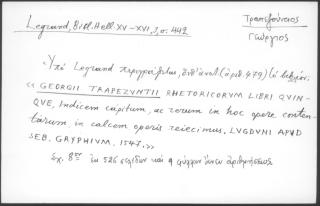 Legrand, Bibl. Hell. XV-XVI, 3, σ. 442
Τραπεζούντιος
Γεώργιος
Ὑπὸ Legrand περιγράφεται, (ἀριθ. 479) τὸ βιβλίον:
« GEORGII TRAPEZVNTII RHETORICORVM LIBRI QVIN-
QVE, Indicem capitum, ac rerum in hoc opere conten-
tarum in calcem operis reiecimus. LVGDVNI APVD
SEB. GRYPHIVM, 1547. »
Σχ. 8ον ἐκ 526 σελίδων καὶ 9 φύλλων ἄνευ ἀριθμήσεως